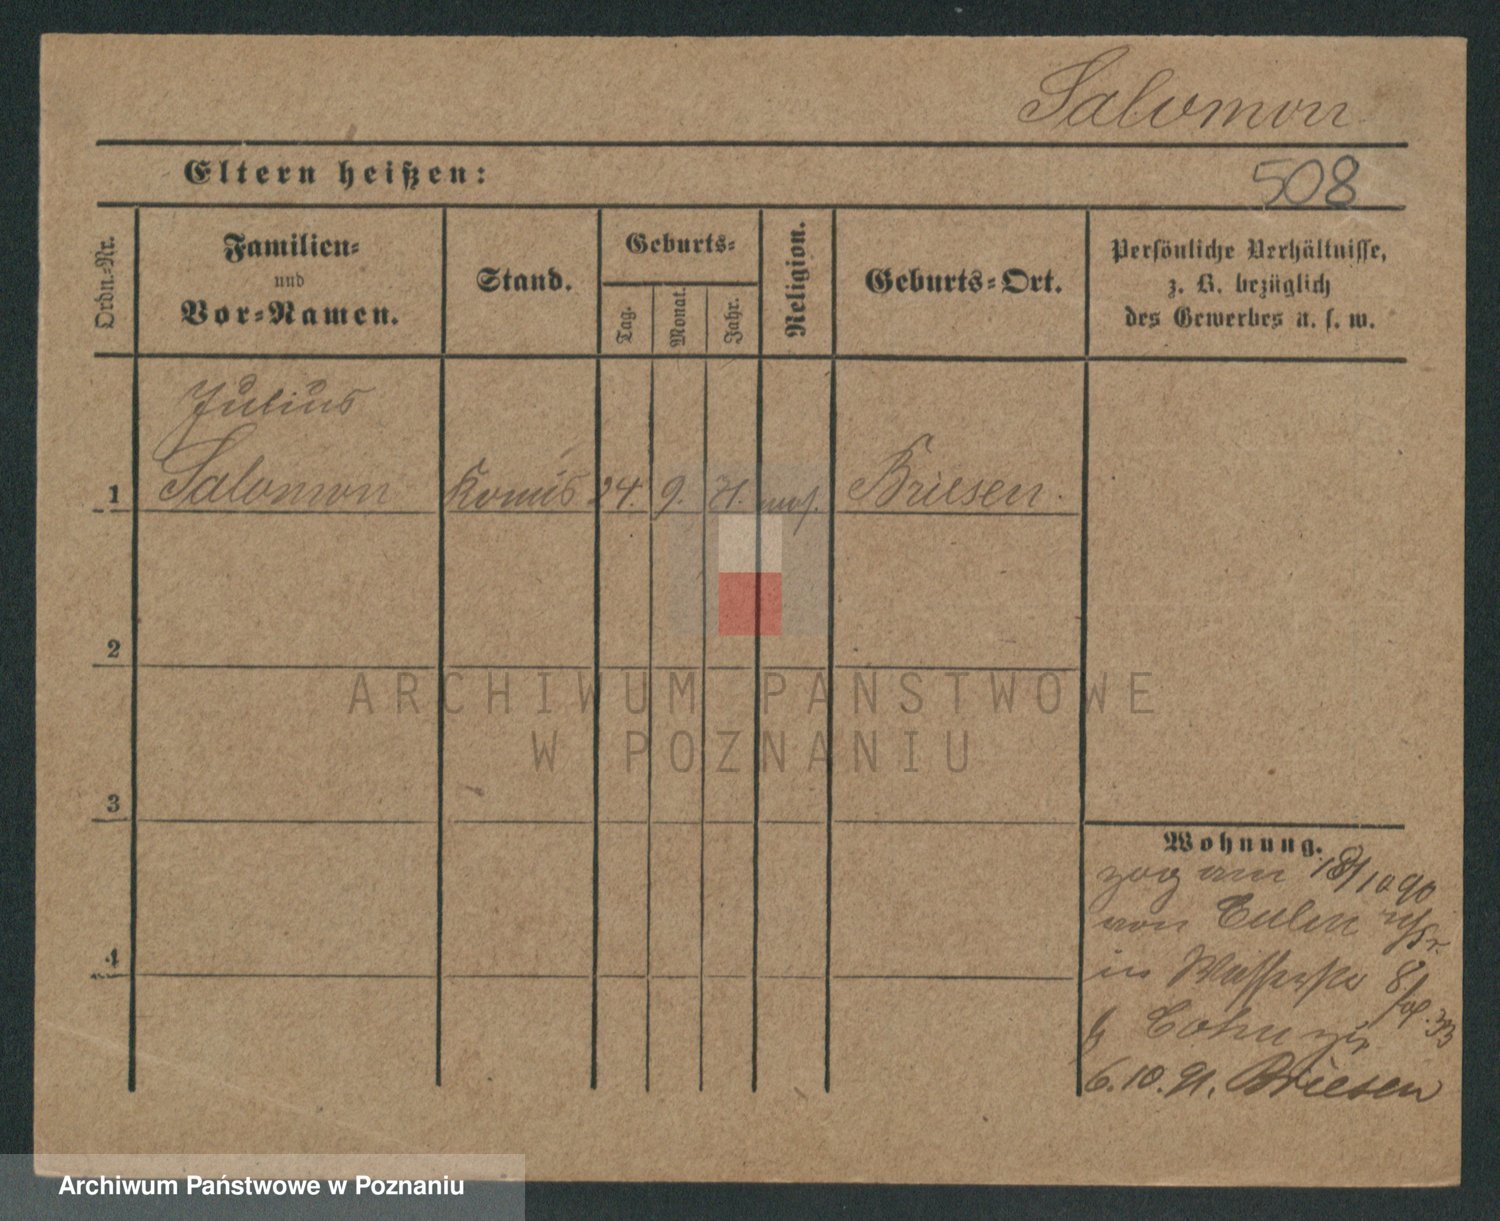 Salomon
Eltern heißen:
508
Ordn.-Nr.
Familien-
und
Vor-Namen.
Stand.
Geburts-
Tag.
Monat.
Jahr.
Religion.
Geburts-Ort.
Persönliche Verhältnisse,
z. B. bezüglich
des Gewerbes u. s. w.
Julius
1 Salomon Komis 24. 9. 71. mos. Briesen
2
3
4
Wohnung.
zog am 18/10 90
von Culm
in Wasserstr 8
b Cohn zu
6.10.91. Briesen
ARCHIWUM PAŃSTWOWE
W POZNANIU
Archiwum Państwowe w Poznaniu